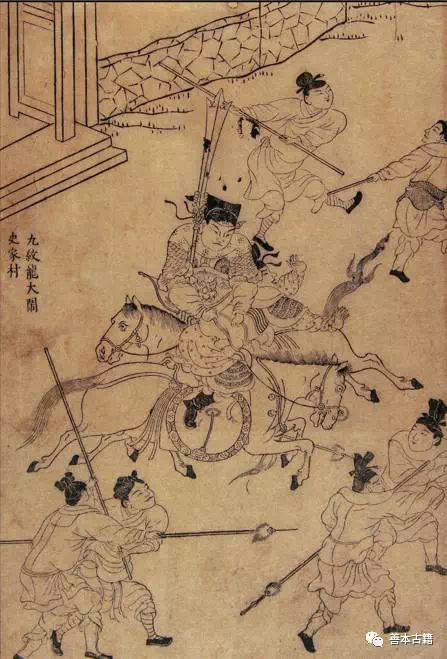 九紋龍大閙
史家村
善本古籍